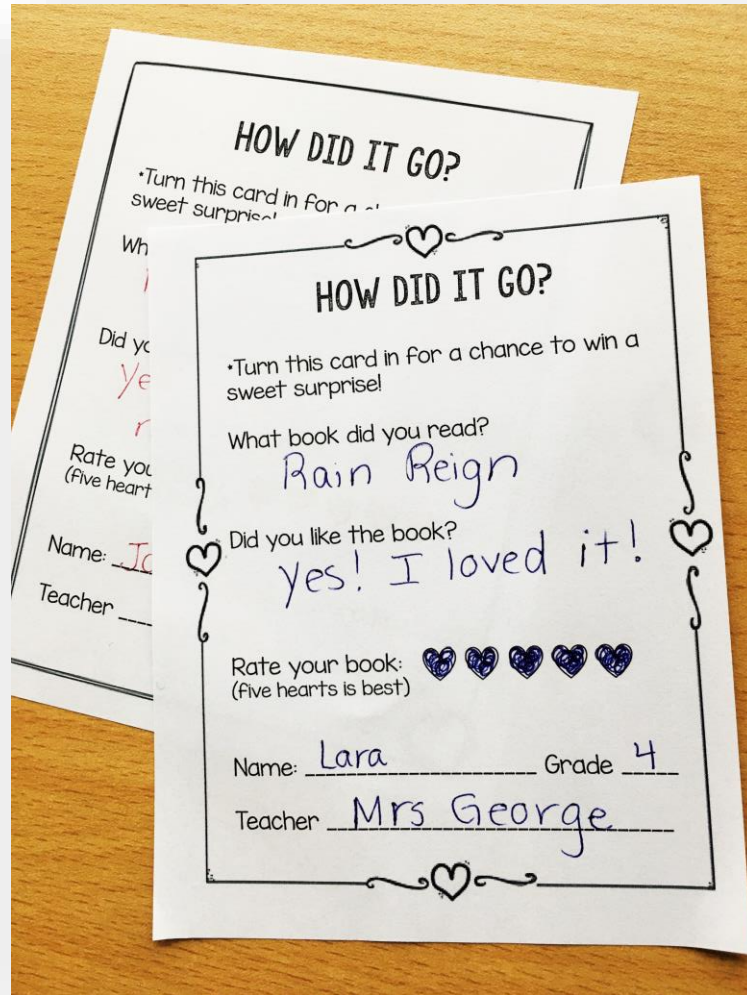 HOW DID IT GO?
•Turn this card in for a
sweet surprise!
Did
Rate
(five
Name:
Teacher
HOW DID IT GO?
•Turn this card in for a chance to win a
sweet surprise!
What book did you read?
Rain Reign
Did you like the book?
yes! I loved it!
Rate your book:
(five hearts is best)
Name: Lara Grade 4
Teacher Mrs George